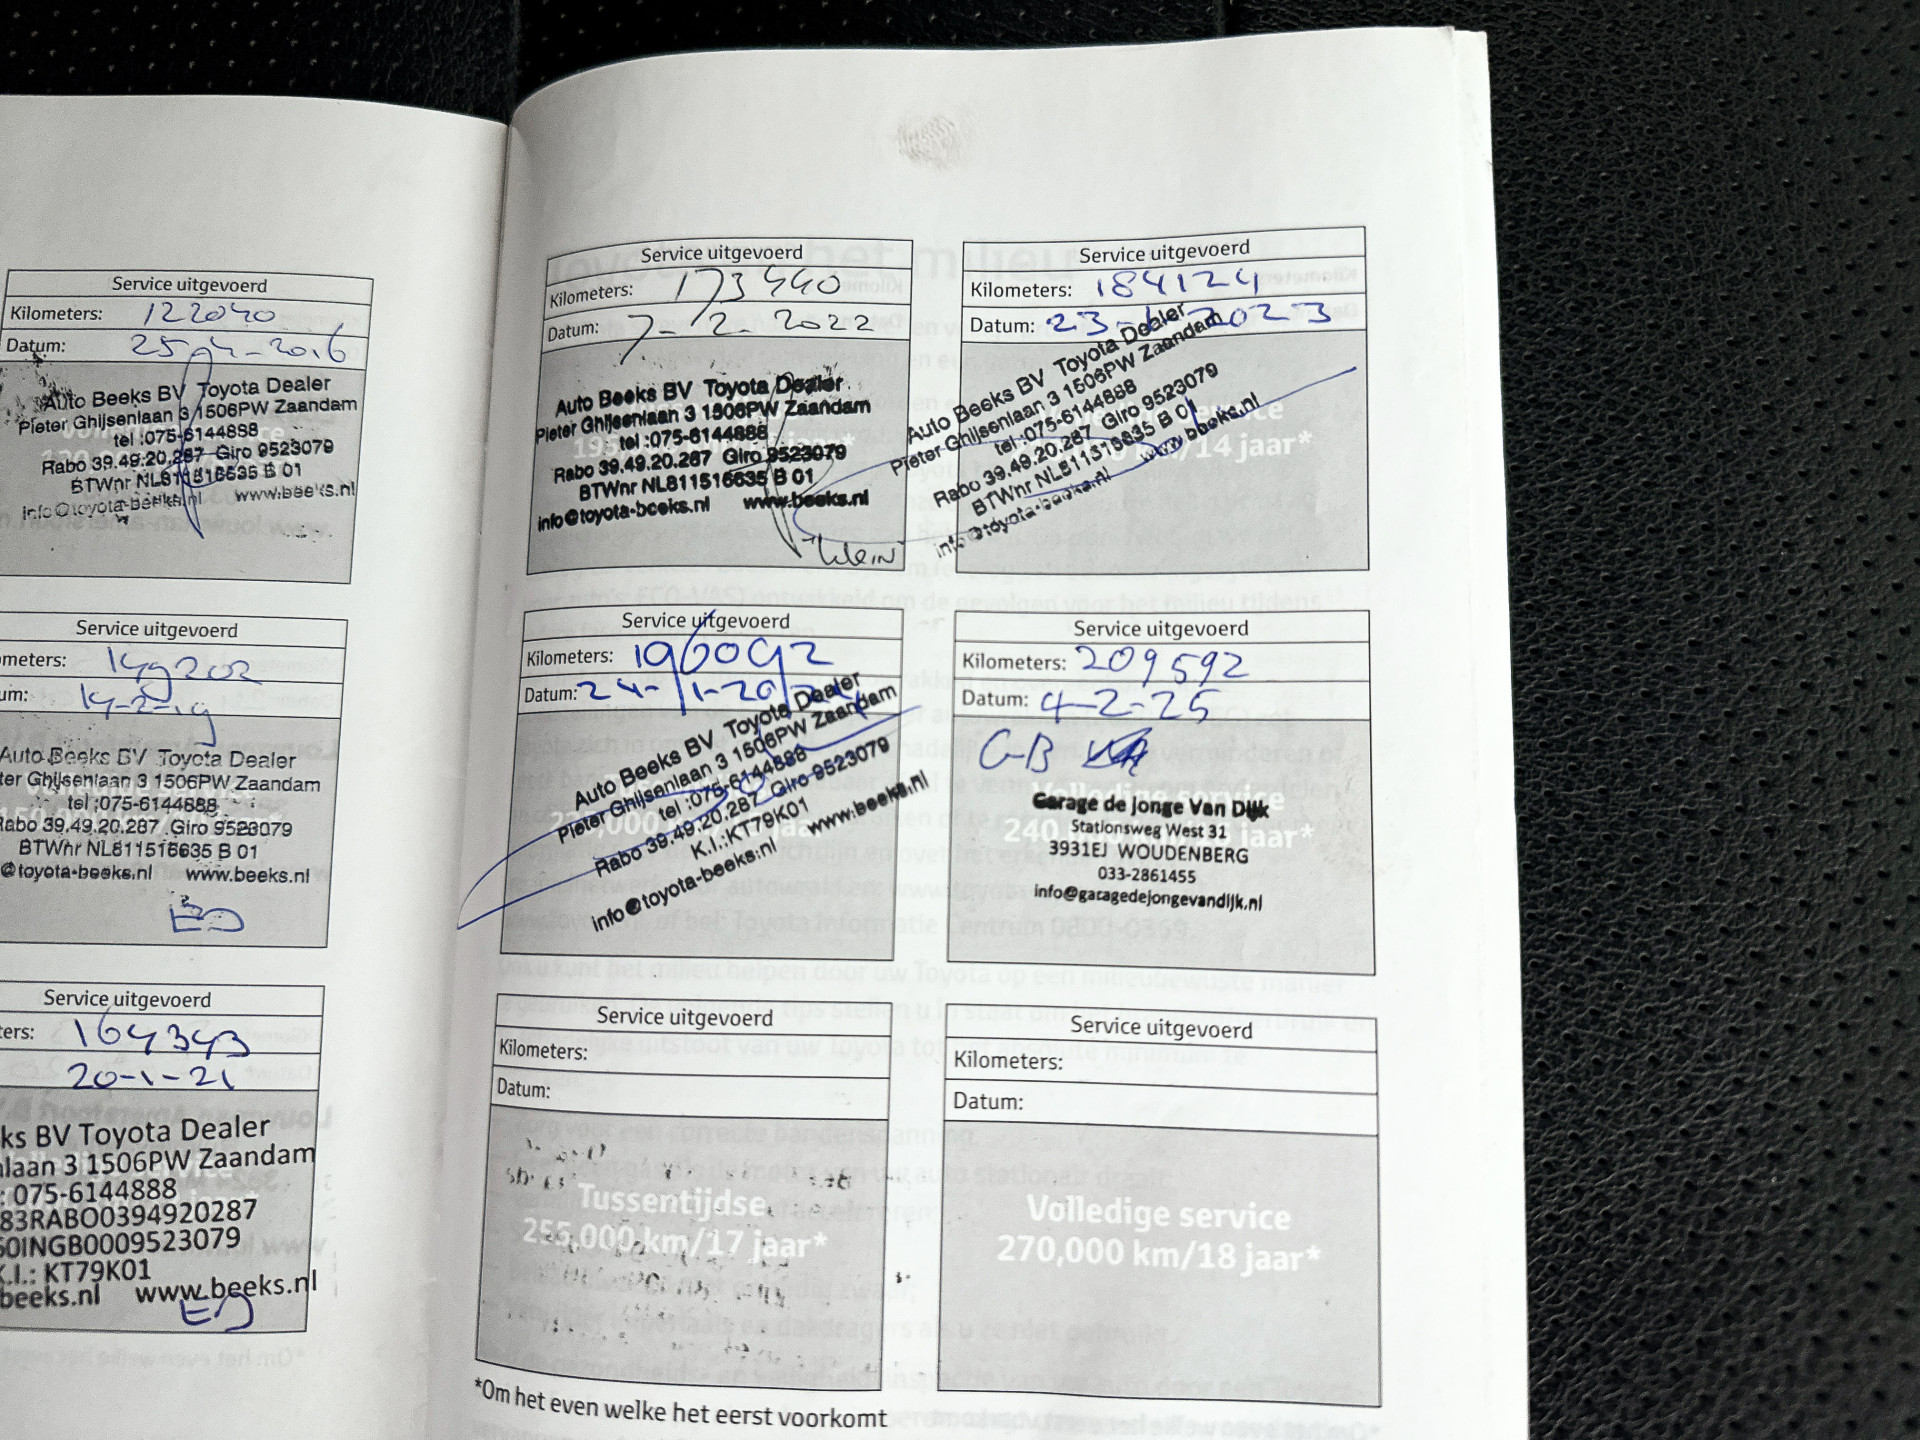 Service uitgevoerd
Kilometers: 122040
Datum: 25-4-2016
Auto Beeks BV Toyota Dealer
Pieter Ghijsenlaan 3 1506PW Zaandam
tel :075-6144888
Rabo 39.49.20.287 Giro 9523079
BTWnr NL811516635 B 01
info@toyota-beeks.nl www.beeks.nl
Service uitgevoerd
meters: 149202
um: 14-2-19
Auto Beeks BV Toyota Dealer
ter Ghijsenlaan 3 1506PW Zaandam
tel :075-6144888
Rabo 39.49.20.287 Giro 9523079
BTWnr NL811516635 B 01
@toyota-beeks.nl www.beeks.nl
Service uitgevoerd
ters: 164343
20-1-21
ks BV Toyota Dealer
nlaan 3 1506PW Zaandam
: 075-6144888
83RABO0394920287
50INGB0009523079
K.I.: KT79K01
beeks.nl www.beeks.nl
Service uitgevoerd
Kilometers: 173440
Datum: 7-2-2022
Auto Beeks BV Toyota Dealer
Pieter Ghijsenlaan 3 1506PW Zaandam
tel :075-6144888
Rabo 39.49.20.287 Giro 9523079
BTWnr NL811516635 B 01
info@toyota-beeks.nl www.beeks.nl
Klein
Service uitgevoerd
Kilometers: 184124
Datum: 23- -2023
Auto Beeks BV Toyota Dealer
Pieter Ghijsenlaan 3 1506PW Zaandam
tel :075-6144888
Rabo 39.49.20.287 Giro 9523079
BTWnr NL811516635 B 01
info@toyota-beeks.nl www.beeks.nl
km/14 jaar*
Service uitgevoerd
Kilometers: 196092
Datum: 24-1-20
Auto Beeks BV Toyota Dealer
Pieter Ghijsenlaan 3 1506PW Zaandam
tel :075-6144888
Rabo 39.49.20.287 Giro 9523079
K.I.:KT79K01
info@toyota-beeks.nl www.beeks.nl
Service uitgevoerd
Kilometers: 209592
Datum: 4-2-25
G-B
Garage de Jonge Van Dijk
Stationsweg West 31
3931EJ WOUDENBERG
033-2861455
info@garagedejongevandijk.nl
Volledige service
240,000 km/16 jaar*
Service uitgevoerd
Kilometers:
Datum:
Tussentijdse
255,000 km/17 jaar*
Service uitgevoerd
Kilometers:
Datum:
Volledige service
270,000 km/18 jaar*
*Om het even welke het eerst voorkomt